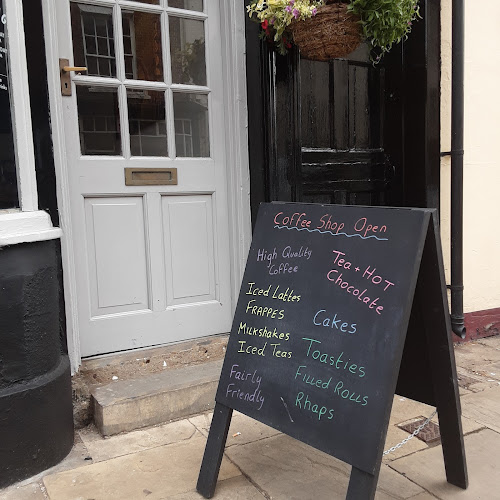 Coffee Shop Open
High Quality
Coffee
Iced Lattes
FRAPPES
Milkshakes
Iced Teas
Fairly
Friendly
Tea + HOT
Chocolate
Cakes
Toasties
Filled Rolls
Rhaps